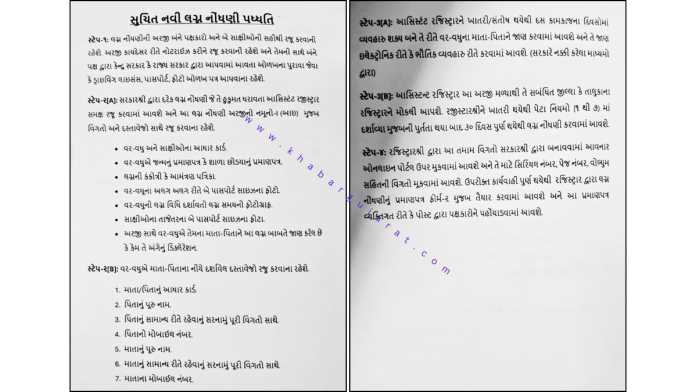 સુચિત નવી લગ્ન નોંધણી પધ્ધતિ
સ્ટેપ-૧: લગ્ન નોંધણીની અરજી બંને પક્ષકારો અને બે સાક્ષીઓની સહીથી રજુ કરવાની
રહેશે. અરજી કાયદેસર રીતે નોટરાઈઝ કરીને રજૂ કરવાની રહેશે અને તેમની સાથે બંને
પક્ષ દ્વારા કેન્દ્ર સરકાર કે રાજ્ય સરકાર દ્વારા આપવામાં આવતા ઓળખના પુરાવા જેવા
કે ડ્રાઇવિંગ લાઇસંસ, પાસપોર્ટ, ફોટો ઓળખ પત્ર આપવાના રહેશે.
સ્ટેપ-૨(A): સરકારશ્રી દ્વારા દરેક લગ્ન નોંધણી જે તે હુકુમત ધરાવતા આસિસ્ટંટ રજીસ્ટ્રાર
સમક્ષ રજુ કરવામાં આવશે અને આ લગ્ન નોંધણી અરજીની નમૂનો-I (ભાછા) મુજબ
વિગતો અને દસ્તાવેજો સાથે રજૂ કરવાના રહેશે.
• વર-વધુ અને સાક્ષીઓના આધાર કાર્ડ.
• વર-વધુએ જન્મનું પ્રમાણપત્ર કે શાળા છોડ્યાનું પ્રમાણપત્ર.
• લગ્નની કંકોત્રી કે આમંત્રણ પત્રિકા.
• વર-વધૂના અલગ અલગ રીતે બે પાસપોર્ટ સાઇઝના ફોટો.
• વર-વધુનો લગ્ન વિધિ દર્શાવતો લગ્ન સમયનો ફોટોગ્રાફ.
• સાક્ષીઓના તાજેતરના બે પાસપોર્ટ સાઇઝના ફોટા.
• અરજી સાથે વર-વધુએ તેમના માતા-પિતાને આ લગ્ન બાબતે જાણ કરેલ છે
કે કેમ તે અંગેનું ડિક્લેરેશન.
સ્ટેપ-૨(B): વર-વધુએ માતા-પિતાના નીચે દર્શાવેલ દસ્તાવેજો રજુ કરવાના રહેશે.
1. માતા/પિતાનું આધાર કાર્ડ.
2. પિતાનું પૂરુ નામ.
3. પિતાનું સામાન્ય રીતે રહેવાનું સરનામું પૂરી વિગતો સાથે.
4. પિતાનો મોબાઈલ નંબર.
5. માતાનું પૂરુ નામ.
6. માતાનું સામાન્ય રીતે રહેવાનું સરનામું પૂરી વિગતો સાથે.
7. માતાના મોબાઈલ નંબર.
સ્ટેપ-૩(A): આસિસ્ટંટ રજિસ્ટ્રારને ખાતરી/સંતોષ થયેથી દસ કામકાજના દિવસોમાં
વ્યવહારુ શક્ય અને તે રીતે વર-વધુના માતા-પિતાને જાણ કરવામાં આવશે અને તે જાણ
ઇલેક્ટ્રોનિક રીતે કે ભૌતિક વ્યવહારુ રીતે કરવામાં આવશે. (સરકારે નક્કી કરેલા માધ્યમો
દ્વારા)
સ્ટેપ-૩(B): આસિસ્ટન્ટ રજિસ્ટ્રાર આ અરજી મળ્યાથી તે સંબંધિત જીલ્લા કે તાલુકાના
રજિસ્ટ્રારને મોકલી આપશે. રજીસ્ટારશ્રીને ખાતરી થયેથી પેટા નિયમો (૧ થી ૭) માં
દર્શાવ્યા મુજબની પુર્તતા થયા બાદ ૩૦ દિવસ પુર્ણ થયેથી લગ્ન નોંધણી કરવામાં આવશે.
સ્ટેપ-૪: રજિસ્ટ્રારશ્રી દ્વારા આ તમામ વિગતો સરકારશ્રી દ્વારા બનાવવામાં આવનાર
ઓનલાઇન પોર્ટલ ઉપર મુકવામાં આવશે અને તે માટે સિરિયલ નંબર, પેજ નંબર, વોલ્યુમ
સહિતની વિગતો મૂકવામાં આવશે. ઉપરોક્ત કાર્યવાહી પુર્ણ થયેથી રજિસ્ટ્રાર દ્વારા લગ્ન
નોંધણીનું પ્રમાણપત્ર ફોર્મ-૨ મુજબ તૈયાર કરવામાં આવશે અને આ પ્રમાણપત્ર
વ્યક્તિગત રીતે કે પોસ્ટ દ્વારા પક્ષકારોને પહોંચાડવામાં આવશે.
www.khabargujarat.com